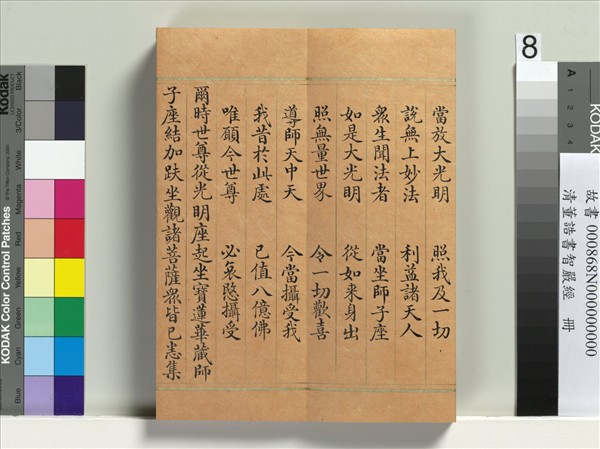 當放大光明 照我及一切
說無上妙法 利益諸天人
衆生聞法者 當坐師子座
如是大光明 從如来身出
照無量世界 令一切歡喜
導師天中天 今當攝受我
我昔於此處 已值八億佛
唯願今世尊 必哀愍攝受
爾時世尊從光明座起坐寶蓮華藏師
子座結加趺坐觀諸菩薩衆皆已悉集
8
A 1 2 3 4
故書 000868N000000000
清董誥書智嚴經 冊
Kodak
KODAK Color Control Patches
Blue Cyan Green Yellow Red Magenta White 3/Color Black